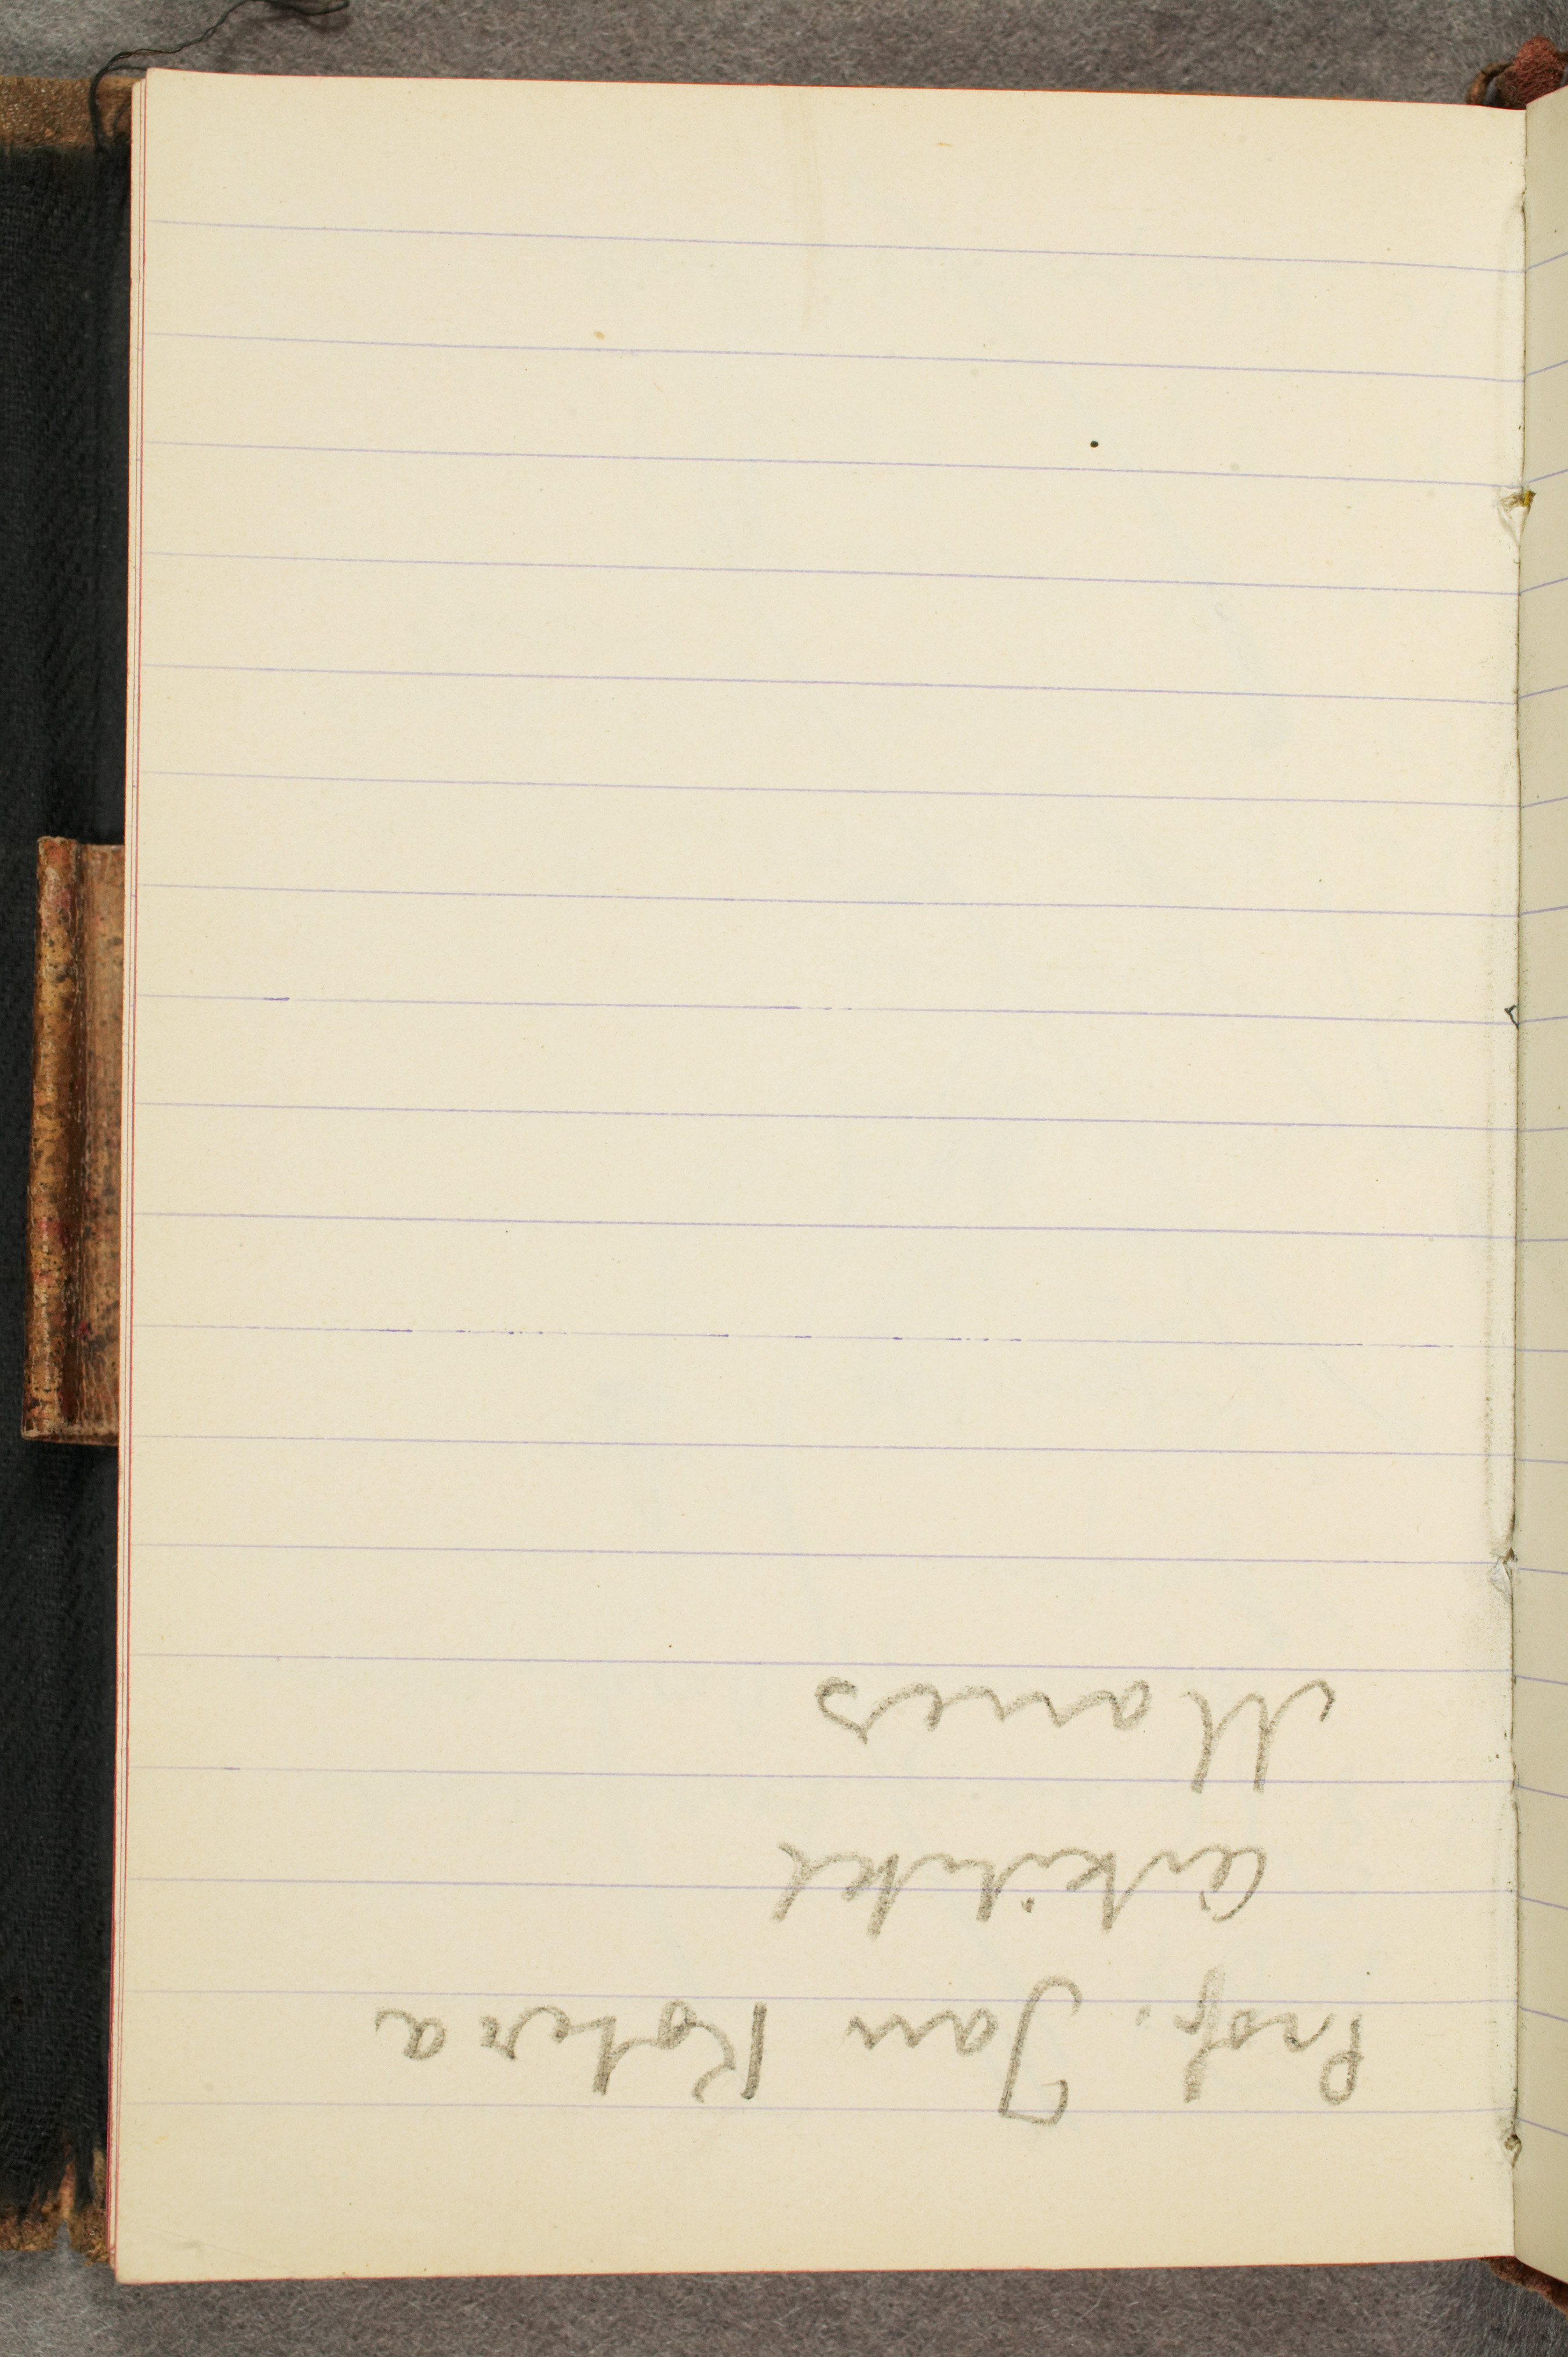 Prof. Jan Kotera
Arkitekt
Manes